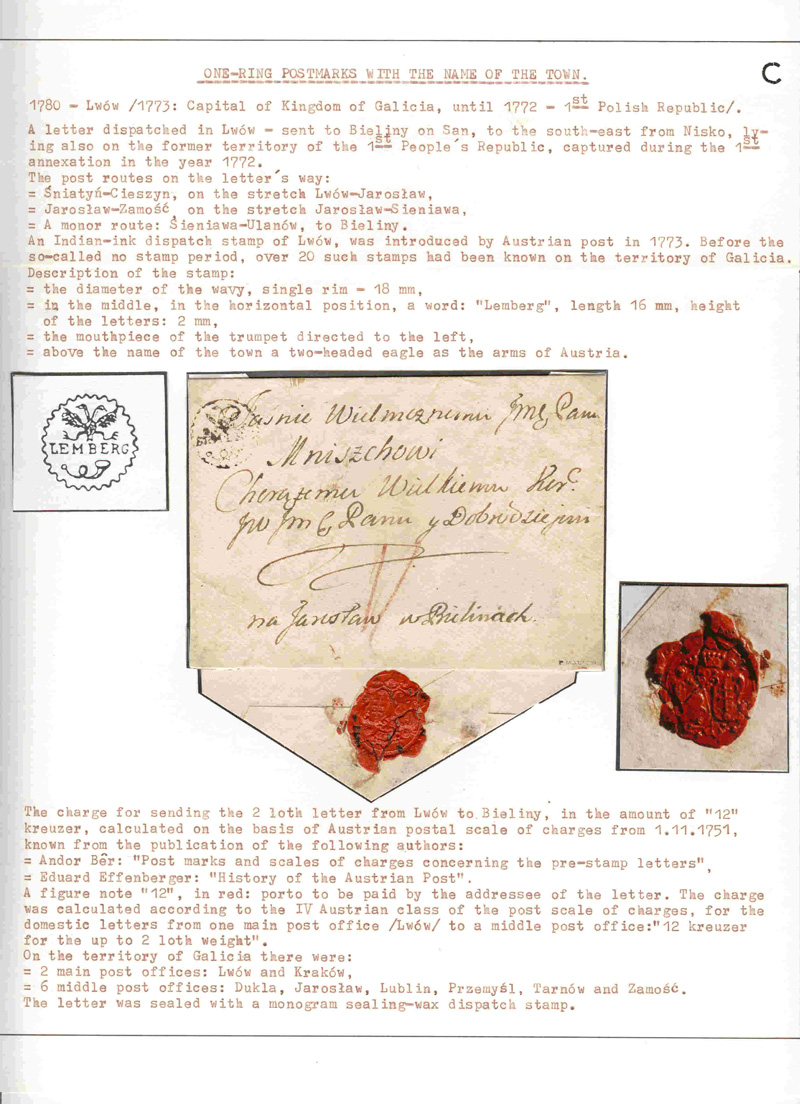 ONE-RING POSTMARKS WITH THE NAME OF THE TOWN.
C
1780 - Lwów /1773: Capital of Kingdom of Galicia, until 1772 - 1st Polish Republic/.
A letter dispatched in Lwów - sent to Bieliny on San, to the south-east from Nisko, ly-
ing also on the former territory of the 1st People's Republic, captured during the 1st
annexation in the year 1772.
The post routes on the letter's way:
= Śniatyń-Cieszyn, on the stretch Lwów-Jarosław,
= Jarosław-Zamość, on the stretch Jarosław-Sieniawa,
= A monor route: Sieniawa-Ulanów, to Bieliny.
An Indian-ink dispatch stamp of Lwów, was introduced by Austrian post in 1773. Before the
so-called no stamp period, over 20 such stamps had been known on the territory of Galicia.
Description of the stamp:
= the diameter of the wavy, single rim - 18 mm,
= in the middle, in the horizontal position, a word: "Lemberg", length 16 mm, height
of the letters: 2 mm,
= the mouthpiece of the trumpet directed to the left,
= above the name of the town a two-headed eagle as the arms of Austria.
LEMBERG
Jasnie Wielmoznemu Jmç Panu
Mniszchowi
Chorązemu Wielkiemu Kor.
JW Jm Ç Panu y Dobrodziejowi
na Jarosław w Bielinach.
The charge for sending the 2 loth letter from Lwów to Bieliny, in the amount of "12"
kreuzer, calculated on the basis of Austrian postal scale of charges from 1.11.1751,
known from the publication of the following authors:
= Andor Bêr: "Post marks and scales of charges concerning the pre-stamp letters",
= Eduard Effenberger: "History of the Austrian Post".
A figure note "12", in red: porto to be paid by the addressee of the letter. The charge
was calculated according to the IV Austrian class of the post scale of charges, for the
domestic letters from one main post office /Lwów/ to a middle post office:"12 kreuzer
for the up to 2 loth weight".
On the territory of Galicia there were:
= 2 main post offices: Lwów and Kraków,
= 6 middle post offices: Dukla, Jarosław, Lublin, Przemyśl, Tarnów and Zamość.
The letter was sealed with a monogram sealing-wax dispatch stamp.